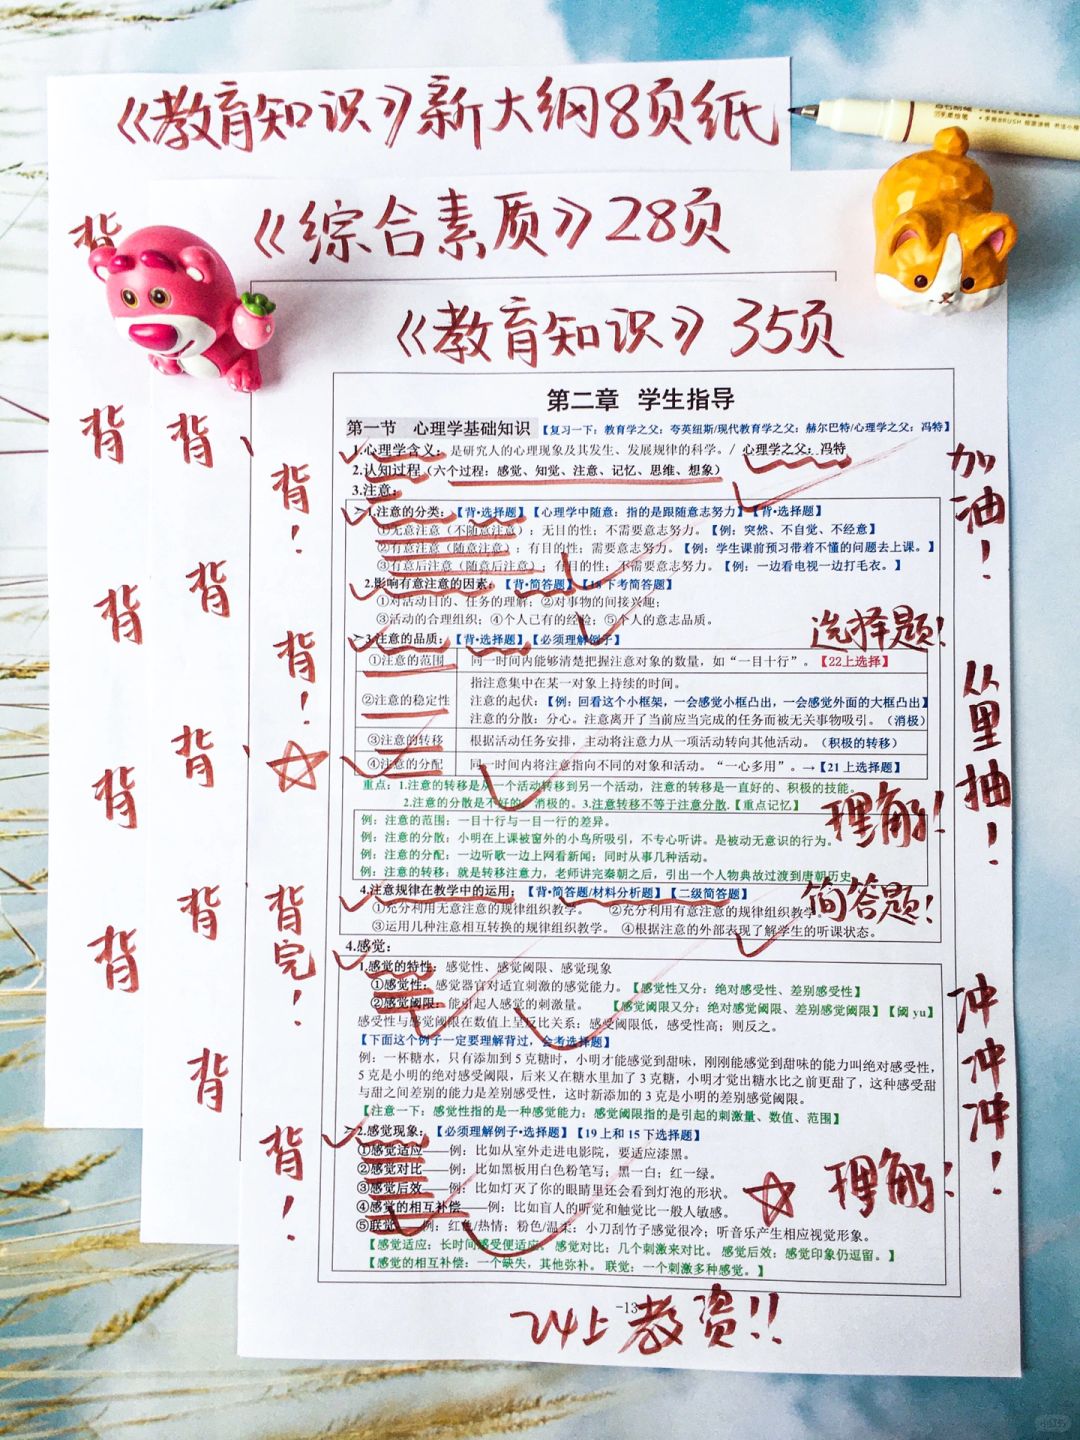 《教育知识》新大纲8页纸
《综合素质》28页
《教育知识》35页
背
背
背
背
背
背
背
背
背
背
背
背！
背！
背完！
背！
加油！
从里抽！
冲冲冲！
选择题！
理解！
简答题！
理解！
第二章 学生指导
第一节 心理学基础知识 【复习一下：教育学之父：夸美纽斯/现代教育学之父：赫尔巴特/心理学之父：冯特】
1.心理学含义：是研究人的心理现象及其发生、发展规律的科学。/ 心理学之父：冯特
2.认知过程（六个过程：感觉、知觉、注意、记忆、思维、想象）
3.注意：
➢1.注意的分类：【背·选择题】【心理学中随意：指的是跟随意志努力】【背·选择题】
①无意注意（不随意注意）：无目的性；不需要意志努力。【例：突然、不自觉、不经意】
②有意注意（随意注意）：有目的性；需要意志努力。【例：学生课前预习带着不懂的问题去上课。】
③有意后注意（随意后注意）：有目的性；不需要意志努力。【例：一边看电视一边打毛衣。】
2.影响有意注意的因素：【背·简答题】【18下考简答题】
①对活动目的、任务的理解；②对事物的间接兴趣；
③活动的合理组织；④个人已有的经验；⑤个人的意志品质。
➢3.注意的品质：【背·选择题】【必须理解例子】
①注意的范围 同一时间内能够清楚把握注意对象的数量，如“一目十行”。【22上选择】
②注意的稳定性 指注意集中在某一对象上持续的时间。
注意的起伏：【例：回看这个小框架，一会感觉小框凸出，一会感觉外面的大框凸出】
注意的分散：分心。注意离开了当前应当完成的任务而被无关事物吸引。（消极）
③注意的转移 根据活动任务安排，主动将注意力从一项活动转向其他活动。（积极的转移）
④注意的分配 同一时间内将注意指向不同的对象和活动。“一心多用”。→【21上选择题】
重点：1.注意的转移是从一个活动转移到另一个活动，注意的转移是一直好的、积极的技能。
2.注意的分散是不好的、消极的。3.注意转移不等于注意分散。【重点记忆】
例：注意的范围：一目十行与一目一行的差异。
例：注意的分散：小明在上课被窗外的小鸟所吸引，不专心听讲。是被动无意识的行为。
例：注意的分配：一边听歌一边上网看新闻；同时从事几种活动。
例：注意的转移：就是转移注意力，老师讲完秦朝之后，引出一个人物典故过渡到唐朝历史
4.注意规律在教学中的运用：【背·简答题/材料分析题】【二级简答题】
①充分利用无意注意的规律组织教学。 ②充分利用有意注意的规律组织教学。
③运用几种注意相互转换的规律组织教学。 ④根据注意的外部表现了解学生的听课状态。
4.感觉：
1.感觉的特性：感觉性、感觉阈限、感觉现象
①感觉性：感觉器官对适宜刺激的感觉能力。【感觉性又分：绝对感受性、差别感受性】
②感觉阈限：能引起人感觉的刺激量。 【感觉阈限又分：绝对感觉阈限、差别感觉阈限】【阈yu】
感受性与感觉阈限在数值上呈反比关系：感受阈限低，感受性高；则反之。
【下面这个例子一定要理解背过，会考选择题】
例：一杯糖水，只有添加到5克糖时，小明才能感觉到甜味，刚刚能感觉到甜味的能力叫绝对感受性，
5克是小明的绝对感受阈限，后来又在糖水里加了3克糖，小明才觉出糖水比之前更甜了，这种感受甜
与甜之间差别的能力是差别感受性，这时新添加的3克是小明的差别感觉阈限。
【注意一下：感觉性指的是一种感觉能力；感觉阈限指的是引起的刺激量、数值、范围】
➢2.感觉现象：【必须理解例子·选择题】【19上和15下选择题】
①感觉适应——例：比如从室外走进电影院，要适应漆黑。
②感觉对比——例：比如黑板用白色粉笔写；黑一白；红一绿。
③感觉后效——例：比如灯灭了你的眼睛里还会看到灯泡的形状。
④感觉的相互补偿——例：比如盲人的听觉和触觉比一般人敏感。
⑤联觉——例：红色/热情；粉色/温柔；小刀刮竹子感觉很冷；听音乐产生相应视觉形象。
【感觉适应：长时间感受便适应。感觉对比：几个刺激来对比。感觉后效：感觉印象仍逗留。】
【感觉的相互补偿：一个缺失，其他弥补。联觉：一个刺激多种感觉。】
-13-
24上教资!!
小红书